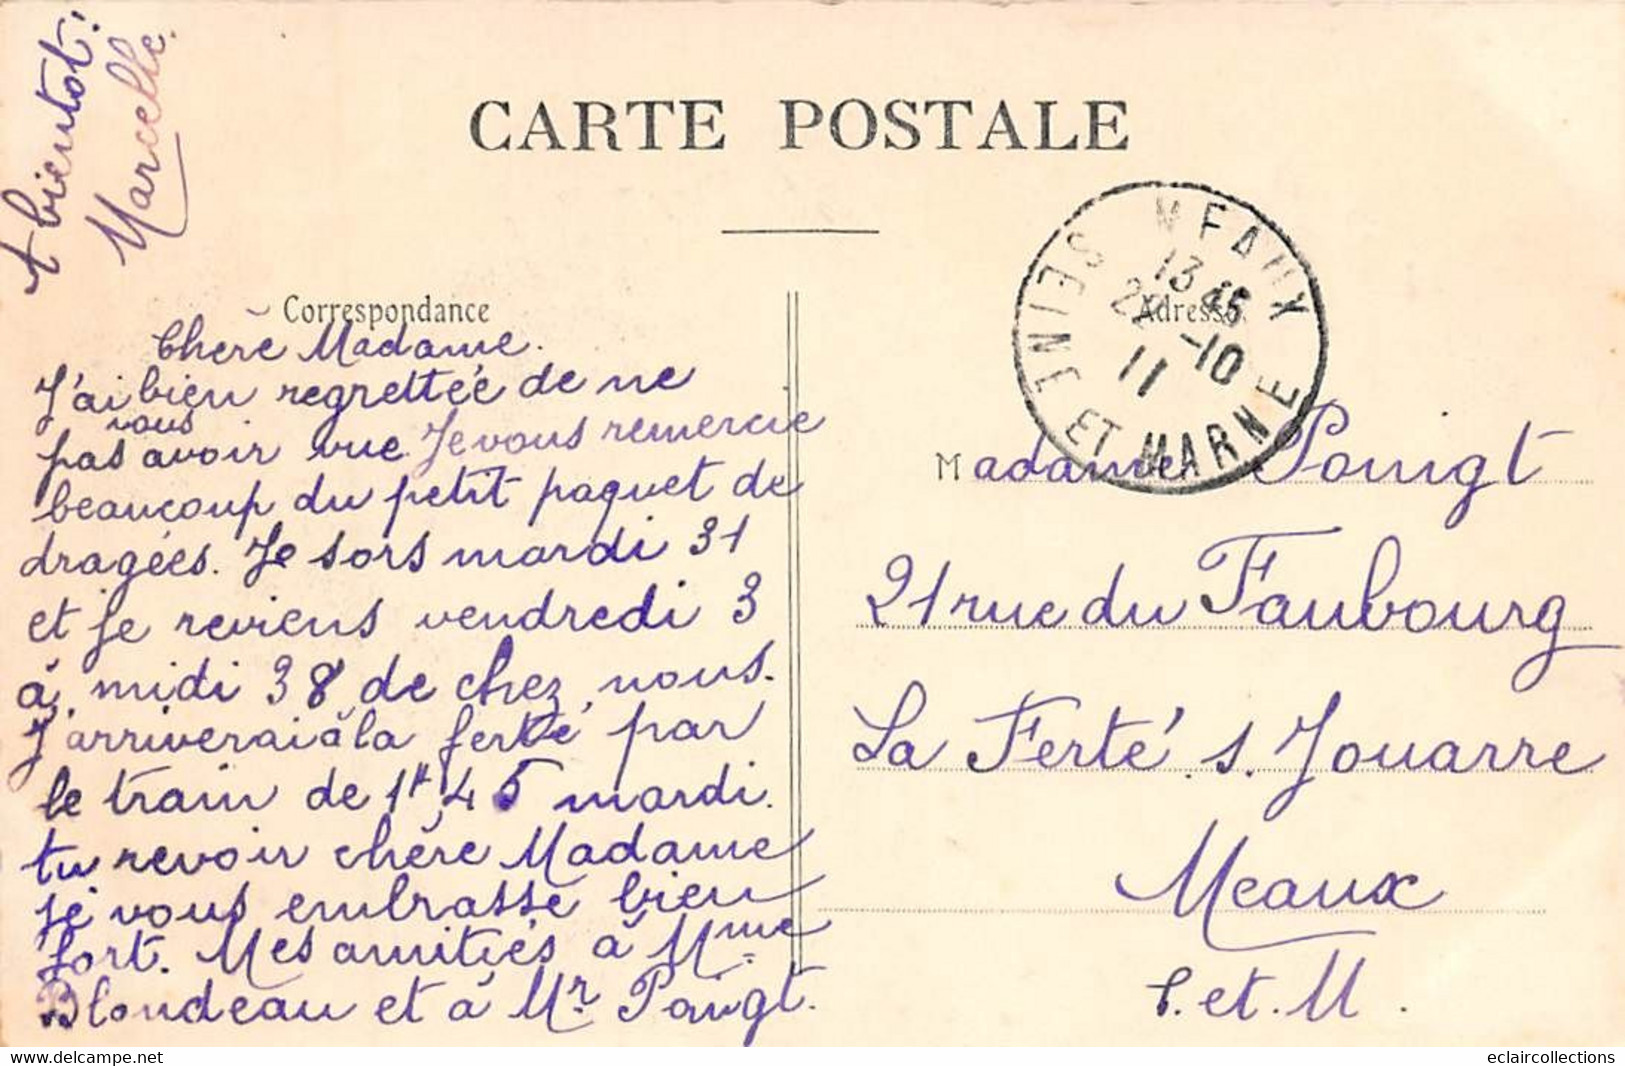 A bientot!
Marcelle.
CARTE POSTALE
MEAUX
SEINE ET MARNE
13 45
-10
11
Correspondance
Adresse
Chère Madame.
J'ai bien regrettée de ne
pas vous avoir vue. Je vous remercie
beaucoup du petit paquet de
dragées. Je sors mardi 31
et je reviens vendredi 3
à midi 38 de chez nous.
J'arriverai à la ferté par
le train de 1h 45 mardi.
tu revoir chère Madame
je vous embrasse bien
fort. Mes amitiés à Mme
Blondeau et à Mr Poingt.
Madame Poingt
21 rue du Faubourg
La Ferté s. Jouarre
Meaux
S. et. M.
eclaircollections